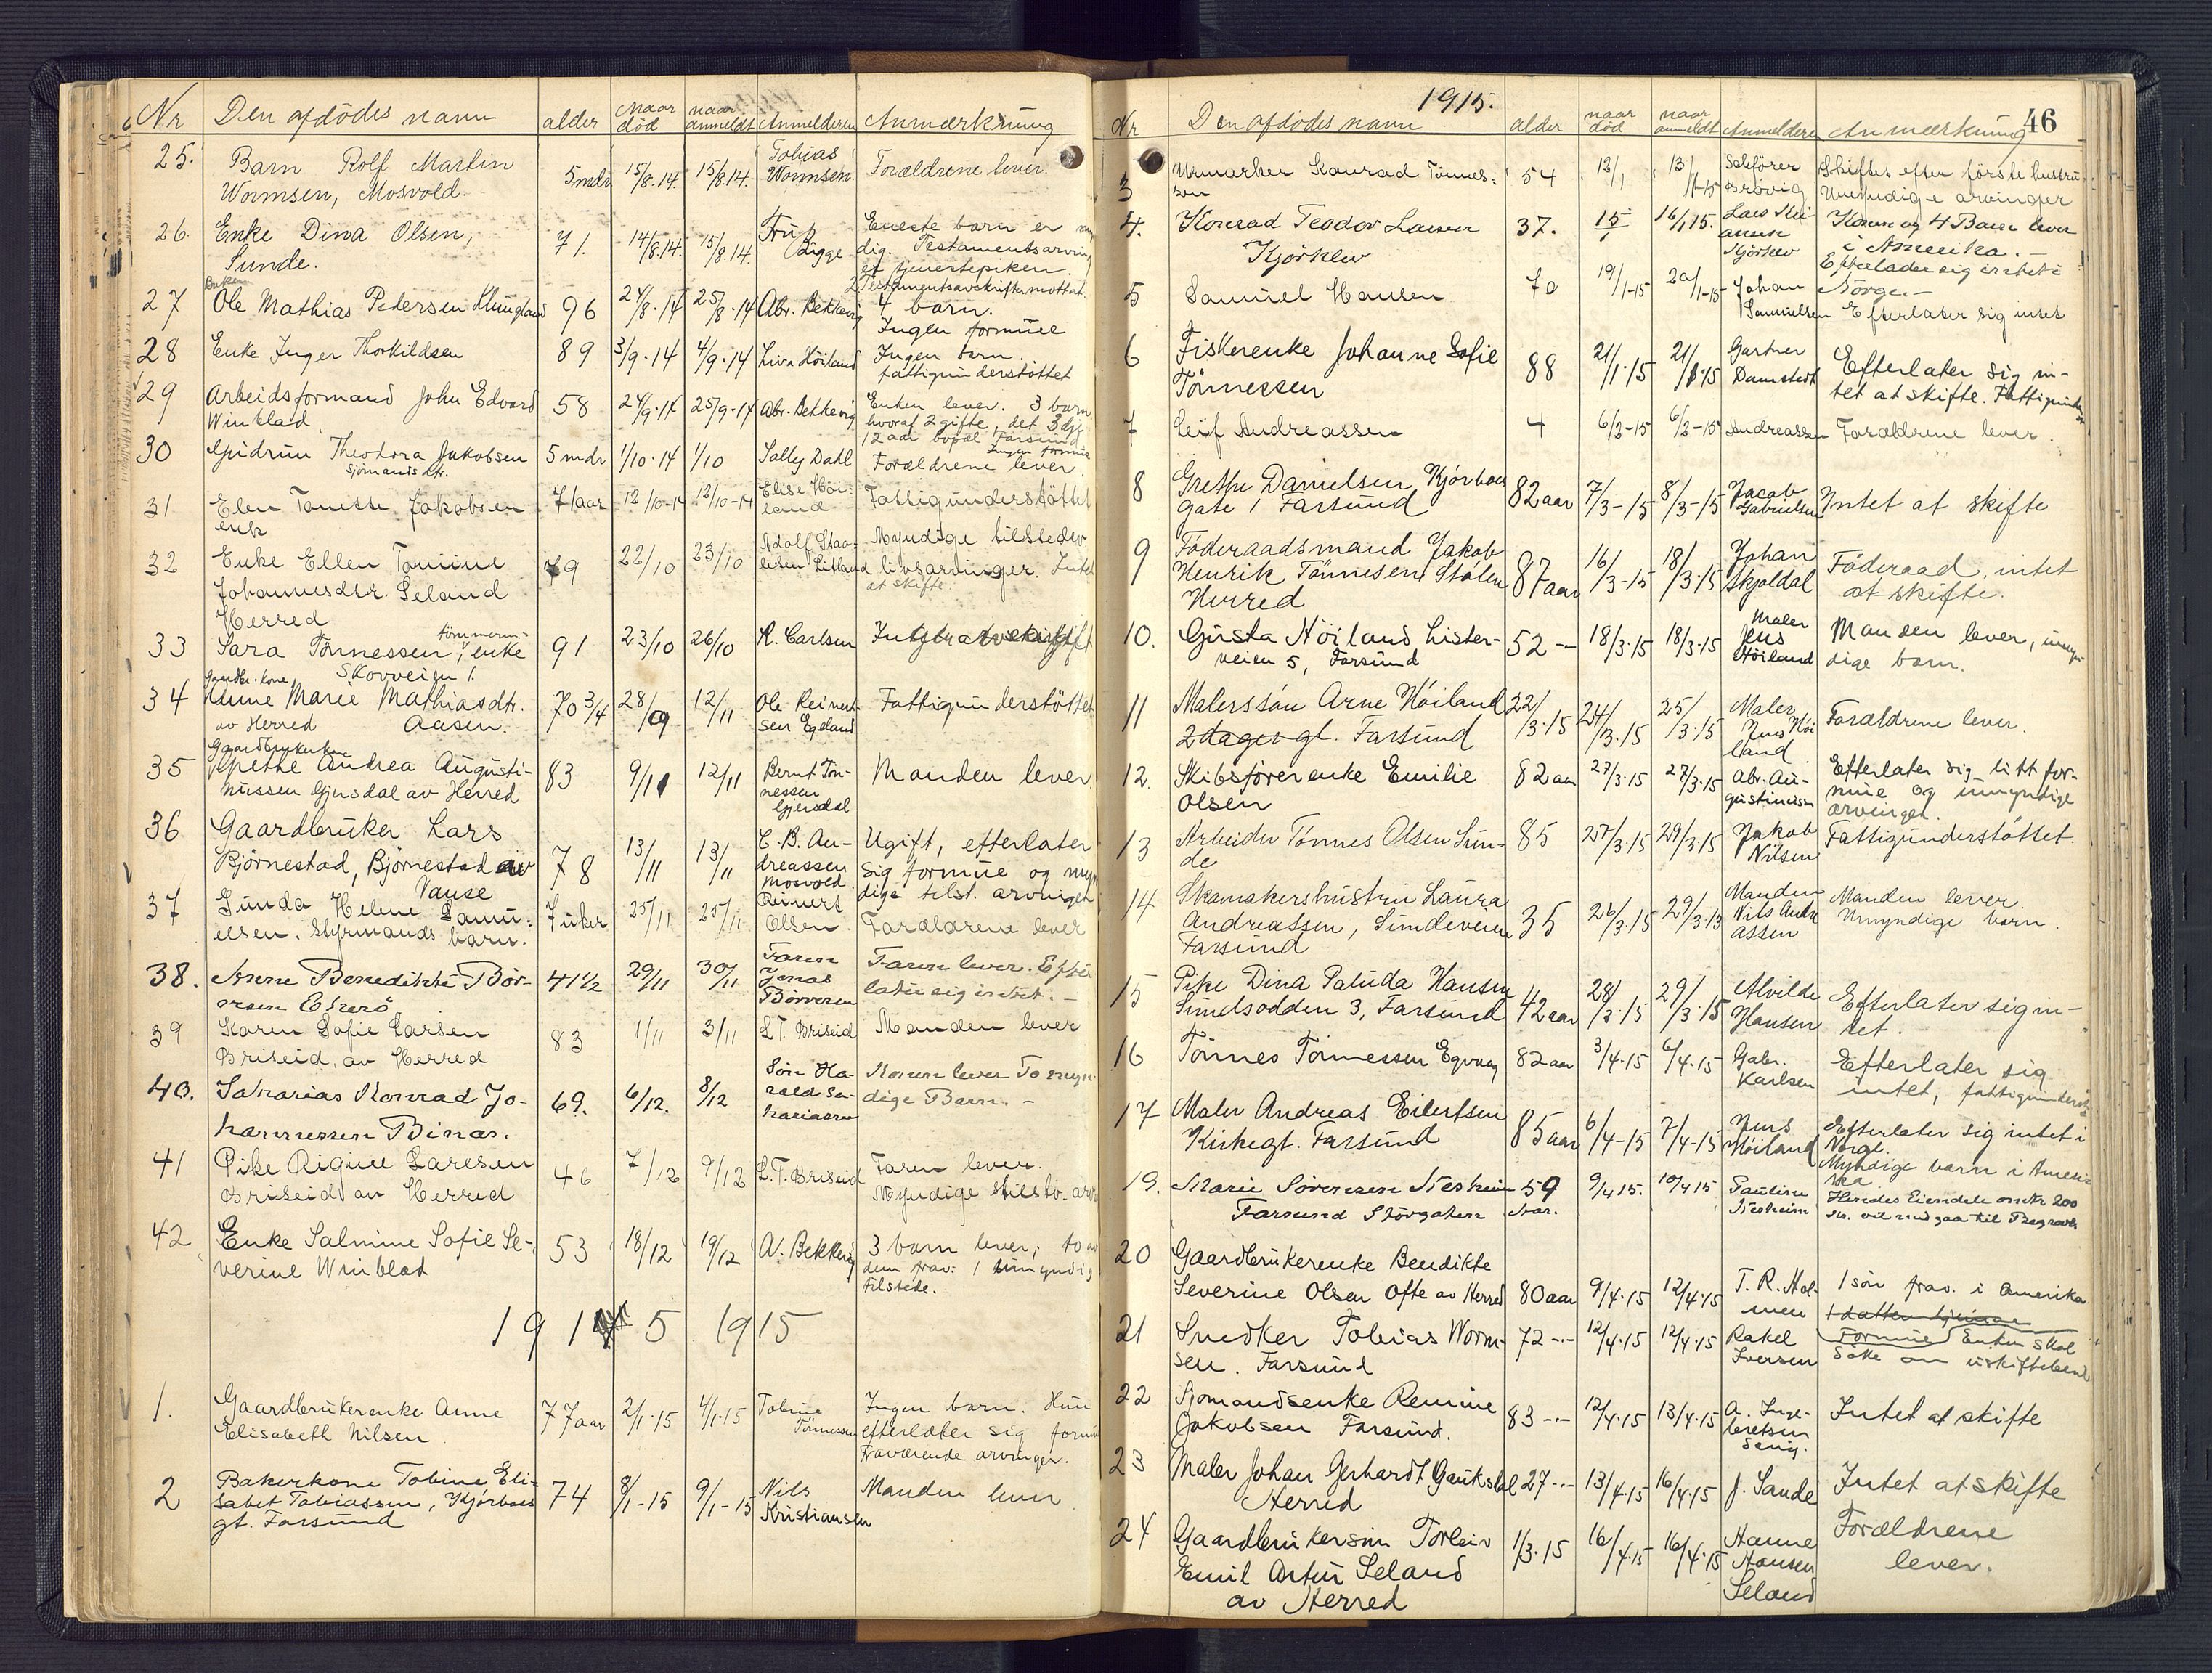 Nr Den afdödes navn alder Naar död naar anmeldt Anmelderen Anmærkning
25. Barn Rolf Martin 5 mdr 15/8.14. 15/8.14. Tobias Wormsen. Forældrene lever.
Wormsen, Mosvold.
26. Enke Dina Olsen, 71. 14/8.14. 15/8.14. Eneste barn er
Sunde. dig. Testamentsarving
er tjenestepiken.
2 Testamentsavskrifter mottat.
27 Ole Mathias Pedersen 96 24/8.14 25/8.14 Abr. Bekkevig 4 barn.
Ingen formue
28 Enke Inger Thorkildsen 89 3/9.14 4/9.14 Høiland Ingen barn.
fattigunderstöttet
29 Arbeidsformand John Edvard 58 24/9.14 25/9.14 Abr. Bekkevig Enken lever. 3 barn
Winblad. hvoraf 2 gifte, det 3dje
12 aar bopæl Farsund
Ingen formue
30 Gudrun Theodora Jakobsen 5 mdr 1/10.14 1/10 Sally Dahl Forældrene lever.
Sjömands dtr.
31 Elen Jakobsen 71 aar 12/10-14 12/10-14 Elise Høiland Fattigunderstöttet
enke
32 Enke Ellen Tomine 79 22/10 23/10 Adolf Myndige tilstedev
Johannesdtr. Seland livsarvinger. Intet
Herred at skifte
33 Sara Tönnessen, tömmerm: enke 91 23/10 26/10 K. Carlsen
Skovveien 1.
34 Gaardbr. kone Anne Marie Mathiasdtr. 70 3/4 28/9 12/11 Ole Reinertsen Egeland Fattigunderstöttet
av Herred Aasen.
35 Grethe Andrea Augusti- 83 9/11 12/11 Bernt Tönnessen Gjersdal Manden lever
nussen Gjersdal av Herred
36 Gaardbruker Lars 78 13/11 13/11 C. B. Andreassen Mosvold. Ugift, efterlater
Björnestad, Björnestad av sig formue og myn
Vanse dige tilst. arvinger
37 Gunda Helene Samu- 7 uker 25/11 25/11 Reinert Olsen. Forældrene lever
elsen. Styrmands barn.
38. Anne Benedikte Bör- 41 1/2 29/11 30/11 Faren Jonas Börresen Faren lever. Efter
resen Eikerö later sig intet. -
39 Karen Sofie Larsen 83 1/11 3/11 L. T. Briseid Manden lever
Briseid, av Herred
40. Sakarias Konrad Jo- 69. 6/12. 8/12 Sön Harald Sakariassen Konen lever To myn
hannessen Binas. dige Barn. -
41 Pike Larsen 46 7/12 9/12 L. T. Briseid Faren lever.
Briseid av Herred Myndige
42 Enke Salmine Sofie Se- 53 18/12 19/12 A. Bekkevig 3 barn lever; to av
verine Winblad dem frav: 1 umyndig
tilstede.
191 5 1915
1. Gaardbrukerenke Anne 77 aar 2/1.15 4/1.15 Tobine Tönnessen Ingen barn. Hun
Elisabeth Nilsen efterlater sig formue
Fraværende arvinger.
2 Bakerkone Tobine Eli- 74 8/1-15 9/1-15 Nils Kristiansen Manden lever
sabet Tobiassen, Kjörboes
gt. Farsund
1915. 46
Nr Den afdödes navn alder naar död naar anmeldt Anmelderen Anmærkning
3 Urmaker Konrad Tönnes- 54 12/1 13/1-15 Sakförer Brövig Skiftes efter förste hustru
sen Umyndige arvinger
4. Konrad Teodor Larsen 37. 15/1 16/1 15. Konen og 4 Barn lever
Kjörkleiv i Amerika. -
Efterlader sig intet i
Norge. -
5 Samuel Hansen 70 19/1-15 20/1-15 Johan Samuelsen Efterlater sig intet
6 Fiskerenke Johanne Sofie 88 21/1.15 21/1.15 Gartner Damstedt Efterlater sig in-
Tönnessen tet at skifte.
7 Leif Andreassen 4 6/2-15 6/2-15 Andreassen Forældrene lever.
8 Grethe Danielsen Kjörboes 82 aar 7/3-15 8/3-15 Jacob Gabrielsen Intet at skifte
gate 1 Farsund
9 Föderaadsmand Jakob 87 aar 16/3-15 18/3.15 Johan Skjoldal Föderaad, intet
Henrik Tönnesen Stölen at skifte.
Herred
10. Gusta Höiland Lister- 52 -- 18/3.15 18/3.15 Maler Jens Höiland Manden lever, umyn-
veien 5, Farsund dige barn.
11 Malerssön Arne Höiland 22/3.15 24/3.15 25/3.15 Maler Jens Höiland Forældrene lever.
2 dager gl. Farsund
12. Skibsförerenke Emilie 82 aar 27/3.15 27/3.15 Abr. Augustinussen Efterlater sig litt for-
Olsen mue og umyndige
arvinger.
13 Arbeider Tönnes Olsen Sun- 85 27/3.15 29/3.15 Jakob Nilsen Fattigunderstöttet.
de
14 Skomakershustru Laura 35 26/3.15 29/3.15 Manden Nils Andreassen Manden lever.
Andreassen, Sundeveien Umyndige barn.
Farsund
15 Pike Dina Paluda Hansen 42 aar 28/3.15 29/3.15 Alvilde Hansen Efterlater sig in-
Sundsodden 3, Farsund tet.
16 Tönnes Tönnessen Egvaag 82 aar 3/4.15 6/4.15 Gabr. Karlsen Efterlater sig
intet, fattigunderst
17 Maler Andreas Eilertsen 85 aar 6/4-15 7/4-15 Jens Höiland Efterlater sig intet i
Kirkegt. Farsund Norge.
Myndige barn i Amerika
19. Marie Sörensen Nesheim 59 aar. 9/4 15. 10/4 15 Pauline Nesheim Hendes Eiendele omkr 200
Farsund Storgaten Kr. vil medgaa til Begravelse
20 Gaardbrukerenke Bendikte
Severine Olsen Ofte av Herred 80 aar 9/4.15 12/4.15 T. R. Holmen 1 sön frav. i Amerika
1 datter hjemme
21 Snedker Tobias Worm- 72 -- 12/4.15 12/4.15 Rakel Iversen Formue Enken skal
sen. Farsund söke om uskiftebevil
22 Sjömandsenke Remine 83 -- 12/4.15 13/4.15 A. Ingebretsen Intet at skifte
Jakobsen Farsund.
23 Maler Johan Gerhardt Gauksdal 27 -- 13/4.15 16/4.15 J. Sande Intet at skifte
Herred
24 Gaardbrukersön Torleiv 1/3.15 16/4.15 16/4.15 Hanne Hansen Seland Forældrene
Emil Artur Seland lever.
av Herred